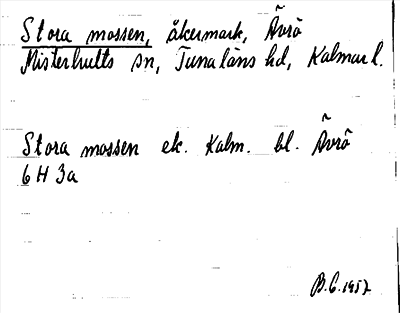 Stora mossen, åkermark, Ävrö
Misterhults sn, Tunaläns hd, Kalmar l.
Stora mossen ek. Kalm. bl. Ävrö
6 H 3a
B.G. 1957